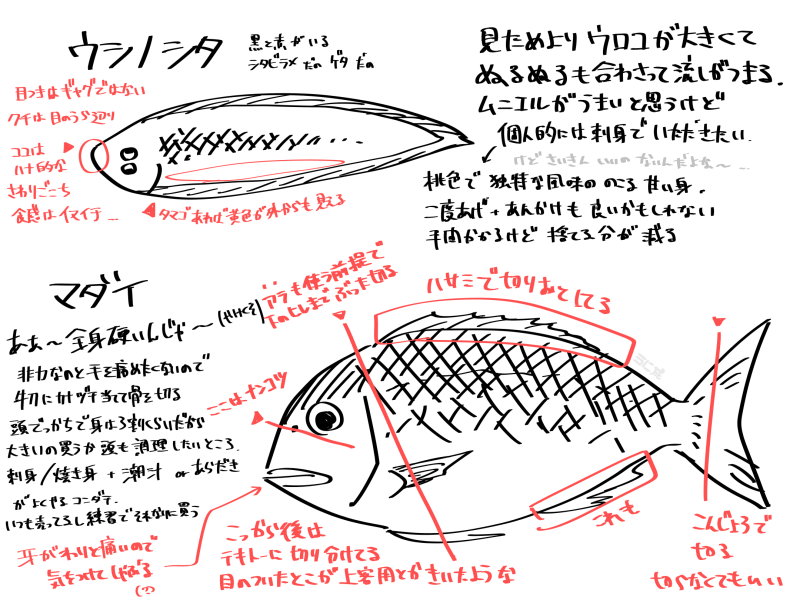 ウシノシタ
黒と赤がいる
シタビラメだの ゲタ だの
目つきはギャグではない
クチは目のうら辺り
ココは
ハナ的な
さわりごこち
食感はイマイチ…
タマゴあれば黄色が外からも見える
見ためより ウロコが大きくて
ぬるぬるも合わさって流しがつまる.
ムニエルがうまいと思うけど
個人的には刺身でいただきたい.
けどさいきん いいの ないんだよな〜…
桃色で 独特な風味ののこる 甘い身.
二度あげ + あんかけも 良いかもしれない
手間かかるけど 捨てる分が減る
マダイ
ああ〜 全身硬いんじゃ〜 (やけくそ)
非力なのと手を痛めたくないので
牛刀にカナヅチ当てて骨を切る
頭でっかちで身は3割くらいだから
大きいの買うか頭も調理したいところ.
刺身/焼き身 + 潮汁 or あらだき
がよくやるコンダテ.
いつも売ってるし練習でそれなりに買う
牙がわりと痛いので
気をつけてしゃぶる
(?)
アラも使う前提で
下のとしまでぶった切る
ハサミで切りおとしてる
ここはナンコツ
これも
こっから後は
テキトーに切り分けてる
目のついたとこが上客用とかきいたような
こんじょうで
切る
切らなくてもいい